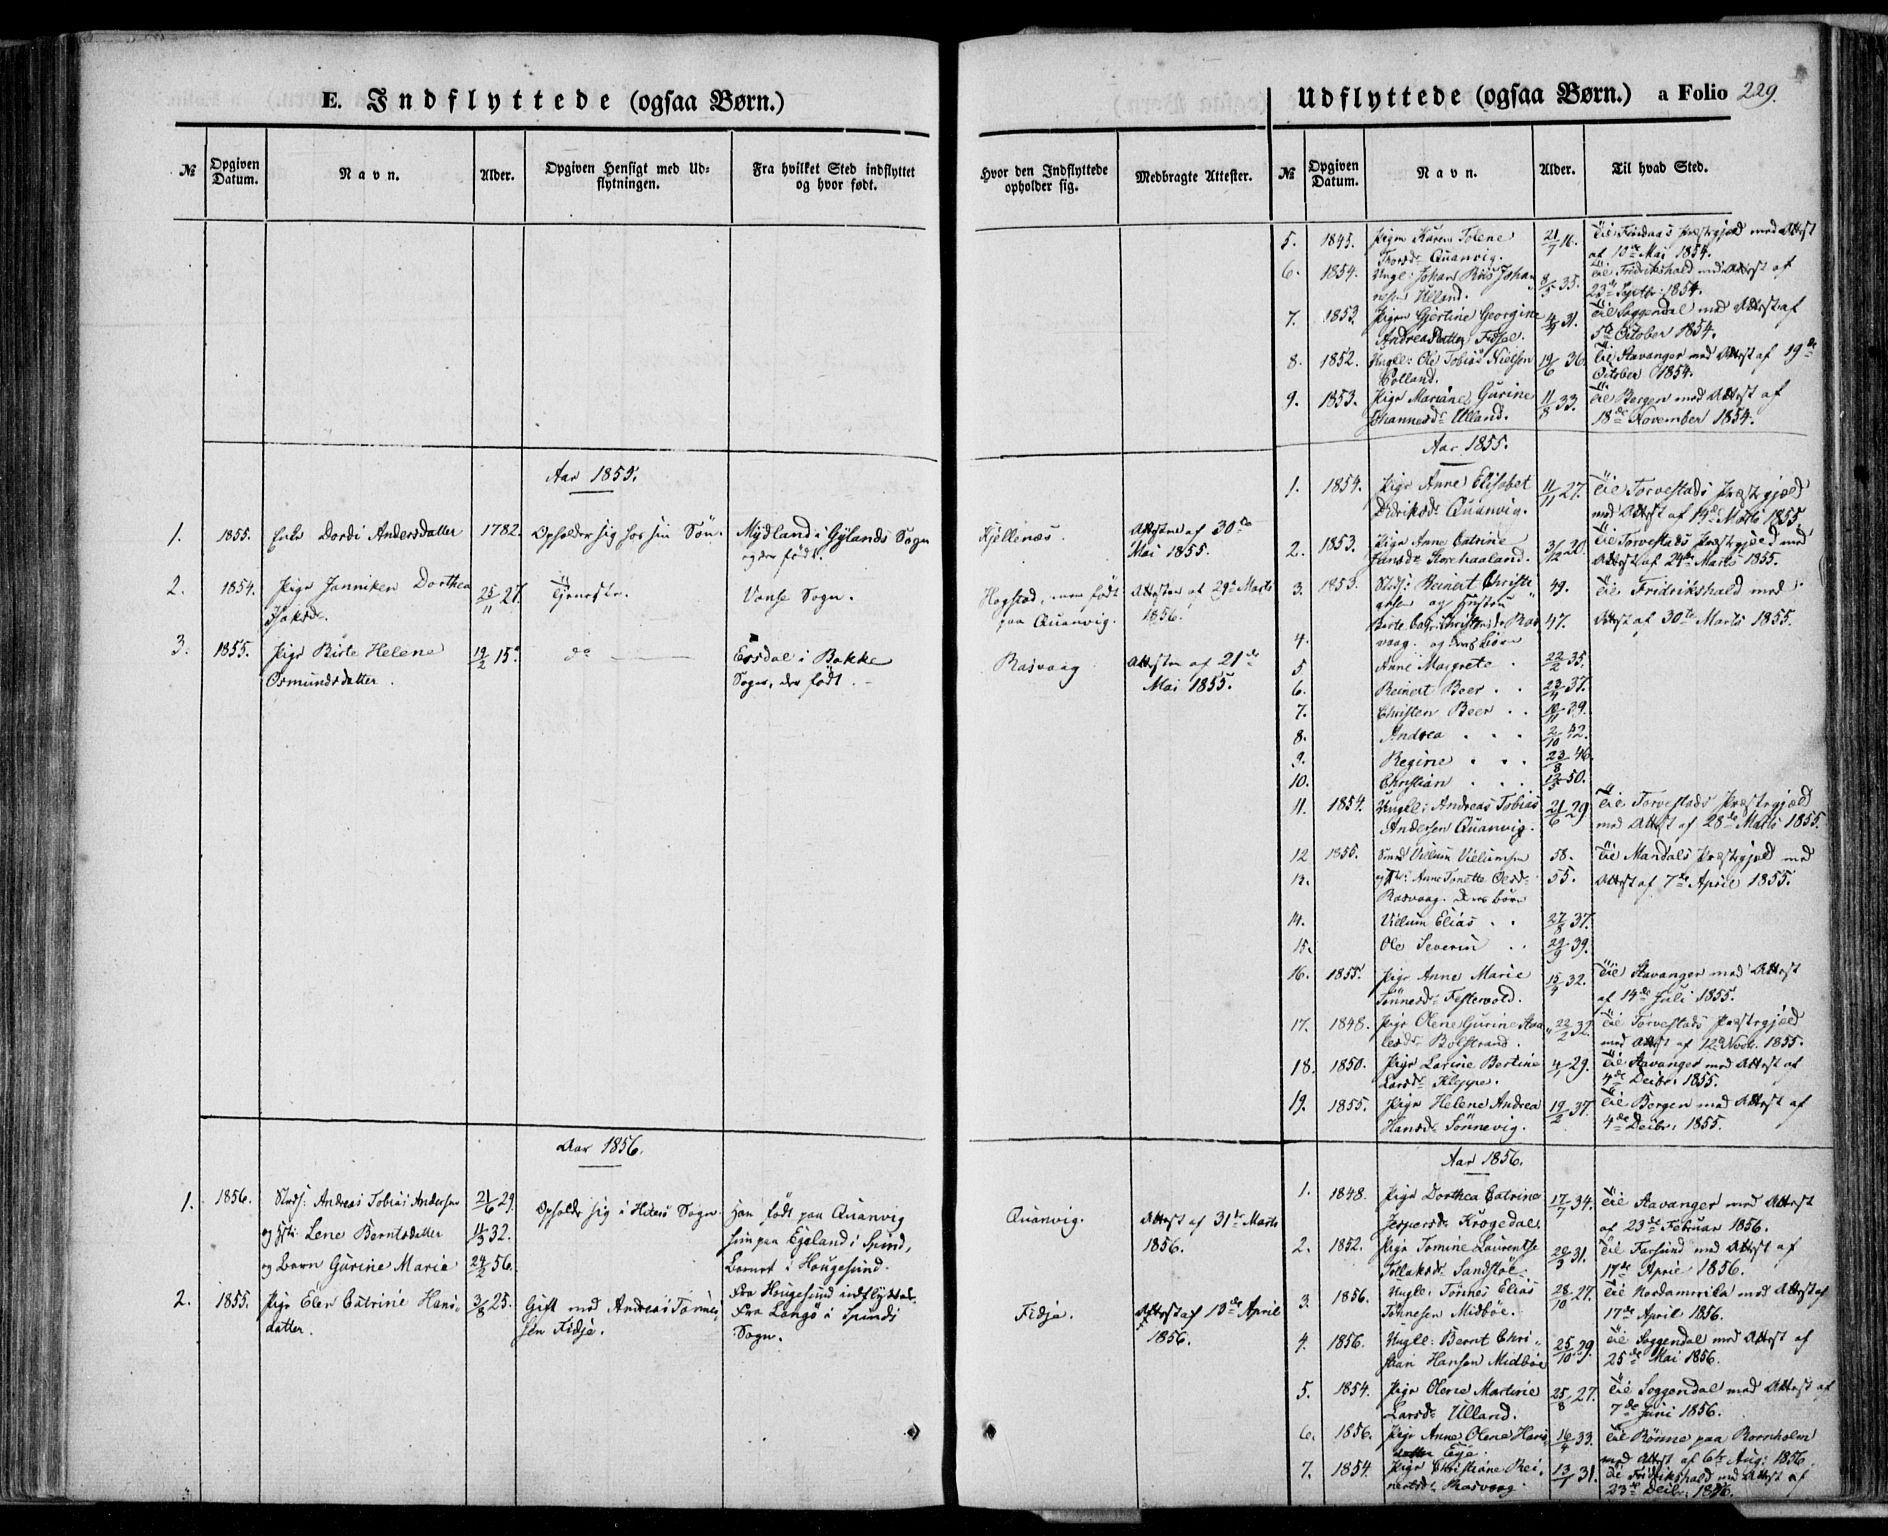 E. Indflyttede (ogsaa Børn.)
№
Opgiven Datum.
Navn.
Alder.
Opgiven Hensigt med Udflytningen.
Fra hvilket Sted indflyttet og hvor født.
Aar 1855.
1. 1855. Enke Dordi Andersdatter 1782. Opholder sig hos sin Søn. Mydland i Gylands Sogn
og der født.
2. 1854. Pige Janniken Dorthea 25/11 27. Tjeneste. Vanse Sogn.
Isaksd.
3. 1855. Pige Birte Helene 19/2 15. do Eersdal i Bakke
Osmundsdatter. Sogn, der født.
Aar 1856.
1. 1856. Andreas Tobias Andersen 21/6 29. Opholder sig i Hitterø Sogn. Han født paa Quanvig
og Lene Berntsdatter 32. hun paa Egeland i Spind,
og Barn Gurine Marie 24/2 56. Barnet i Hougesund.
Fra Hougesund indflyttet.
2. 1855. Pige Elen Catrine Hans- 3/8 25. Gift med Andreas Tønne- Fra Langø i Spinds
datter. sen Fidje. Sogn.
Udflyttede (ogsaa Børn.) a Folio 229.
Hvor den Indflyttede opholder sig.
Medbragte Attester.
№
Opgiven Datum.
Navn.
Alder.
Til hvad Sted.
Kjellenæs. Attesten af 30te
Mai 1855.
Hogstad, men født Attesten af 29de Marts
paa Quanvig. 1856.
Rasvaag Attesten af 21de
Mai 1855.
Quanvig. Attest af 31te Marts
1856.
Fidje. Attest af 13de April
1856.
5. 1845. Pigen Karen Tolene 21/7 16. Til Præstegjeld med Attest
Quanvig. af 13de Mai 1854.
6. 1854. Ungk: Johan Reis Johan- 8/5 35. Til Fredrikshald med Attest af
nesen Ulland. 23de Septbr: 1854.
7. 1853. Pigen Gjertine Georgine 31. Til Soggendal med Attest af
Andreasdatter 5te October 1854.
8. 1852. Ungk: Ole Tobias Nielsen 19/6 36. Til Stavanger med Attest af 19de
October 1854.
9. 1853. Pige Mariane Gurine 11/8 33. Til Bergen med Attest af
Johannesd: Ulland. 18de November 1854.
Aar 1855.
1. 1854. Pige Anne Elisabet 11/11 27. Til Torvestads Præstegjeld
Didriksd: Quanvig. med Attest af 19de Marts 1855.
2. 1853. Pige Anne Catrine 3/12 20. Til Torvestads Præstegjeld med
Attest af 24de Marts 1855.
3. 1853. Reinert Christi- 49. Til Fridrikshald med
og Hustru
47. Attest af 30te Marts 1855.
4. vaag. og deres Børn
5 Anne Margrete 22/2 35.
6. Reinert Beer 23/4 37.
7. Christen Beer 10/11 39.
8. Andrea 2/10 42.
9. Regine 23/8 46.
10. Christian 50.
11. 1854. Ungk: Andreas Tobias 21/6 29 Til Torvestads Præstegjeld
Andersen Quanvig. med Attest af 28de Marts 1855.
12 1855. Villum Villumsen 58. Til Mandals Præstegjeld med
13. Anne Tonette Olsd: 55. Attest af 7de April 1855.
Rasvaag. deres Børn
14. Villum Elias 27/8 37.
15. Ole Severin 29/9 39.
16. 1855. Pige Anne Marie 15/4 32. Til Stavanger med Attest
Tønnesd: Festervold. af 14de Juli 1855.
17. 1848. Pige Olene Gurine 22/2 32. Til Torvestads Præstegjeld
Bolstrand. med Attest af 12te Novbr. 1855.
18. 1850. Pige Larine Bertine 4/1 29. Til Stavanger med Attest af
Larsd: Kleppe. 4de Decbr: 1855.
19. 1855. Pige Helene Andrea 19/2 37. Til Bergen med Attest af
Hansd: Sønnevig. 4de Decbr: 1855.
Aar 1856.
1. 1848. Pige Dorthea Catrine 17/7 34. Til Stavanger med Attest
Jespersd: Krogedal. af 23de Februar 1856.
2. 1852. Pige Tomine Laurentse 31. Til Farsund med Attest af
Tollaksd: Sandstøe. 17de April 1856.
3. 1856. Ungk: Tønnes Elias 28/10 27. Til Nordamerika med Attest af
Tønnesen Midbøe. 17de April 1856.
4. 1856. Ungk: Bernt Chri- 25/10 29. Til Soggendal med Attest af
stian Hansen Midbøe 25de Mai 1856.
5. 1854. Pige Olene Martine 25/8 27. Til Soggendal med Attest af
Larsd: Ulland. 7de Juni 1856.
6. 1856. Pige Anne Olene Hans- 16/4 33. Til Rønne paa Bornholm
datter Eje. med Attest af 6te Aug: 1856.
7. 1854. Pige Christiane Rei- 13/7 31. Til Fridrikshald med Attest af
nertsd: Rasvaag. 23de Decbr: 1856.